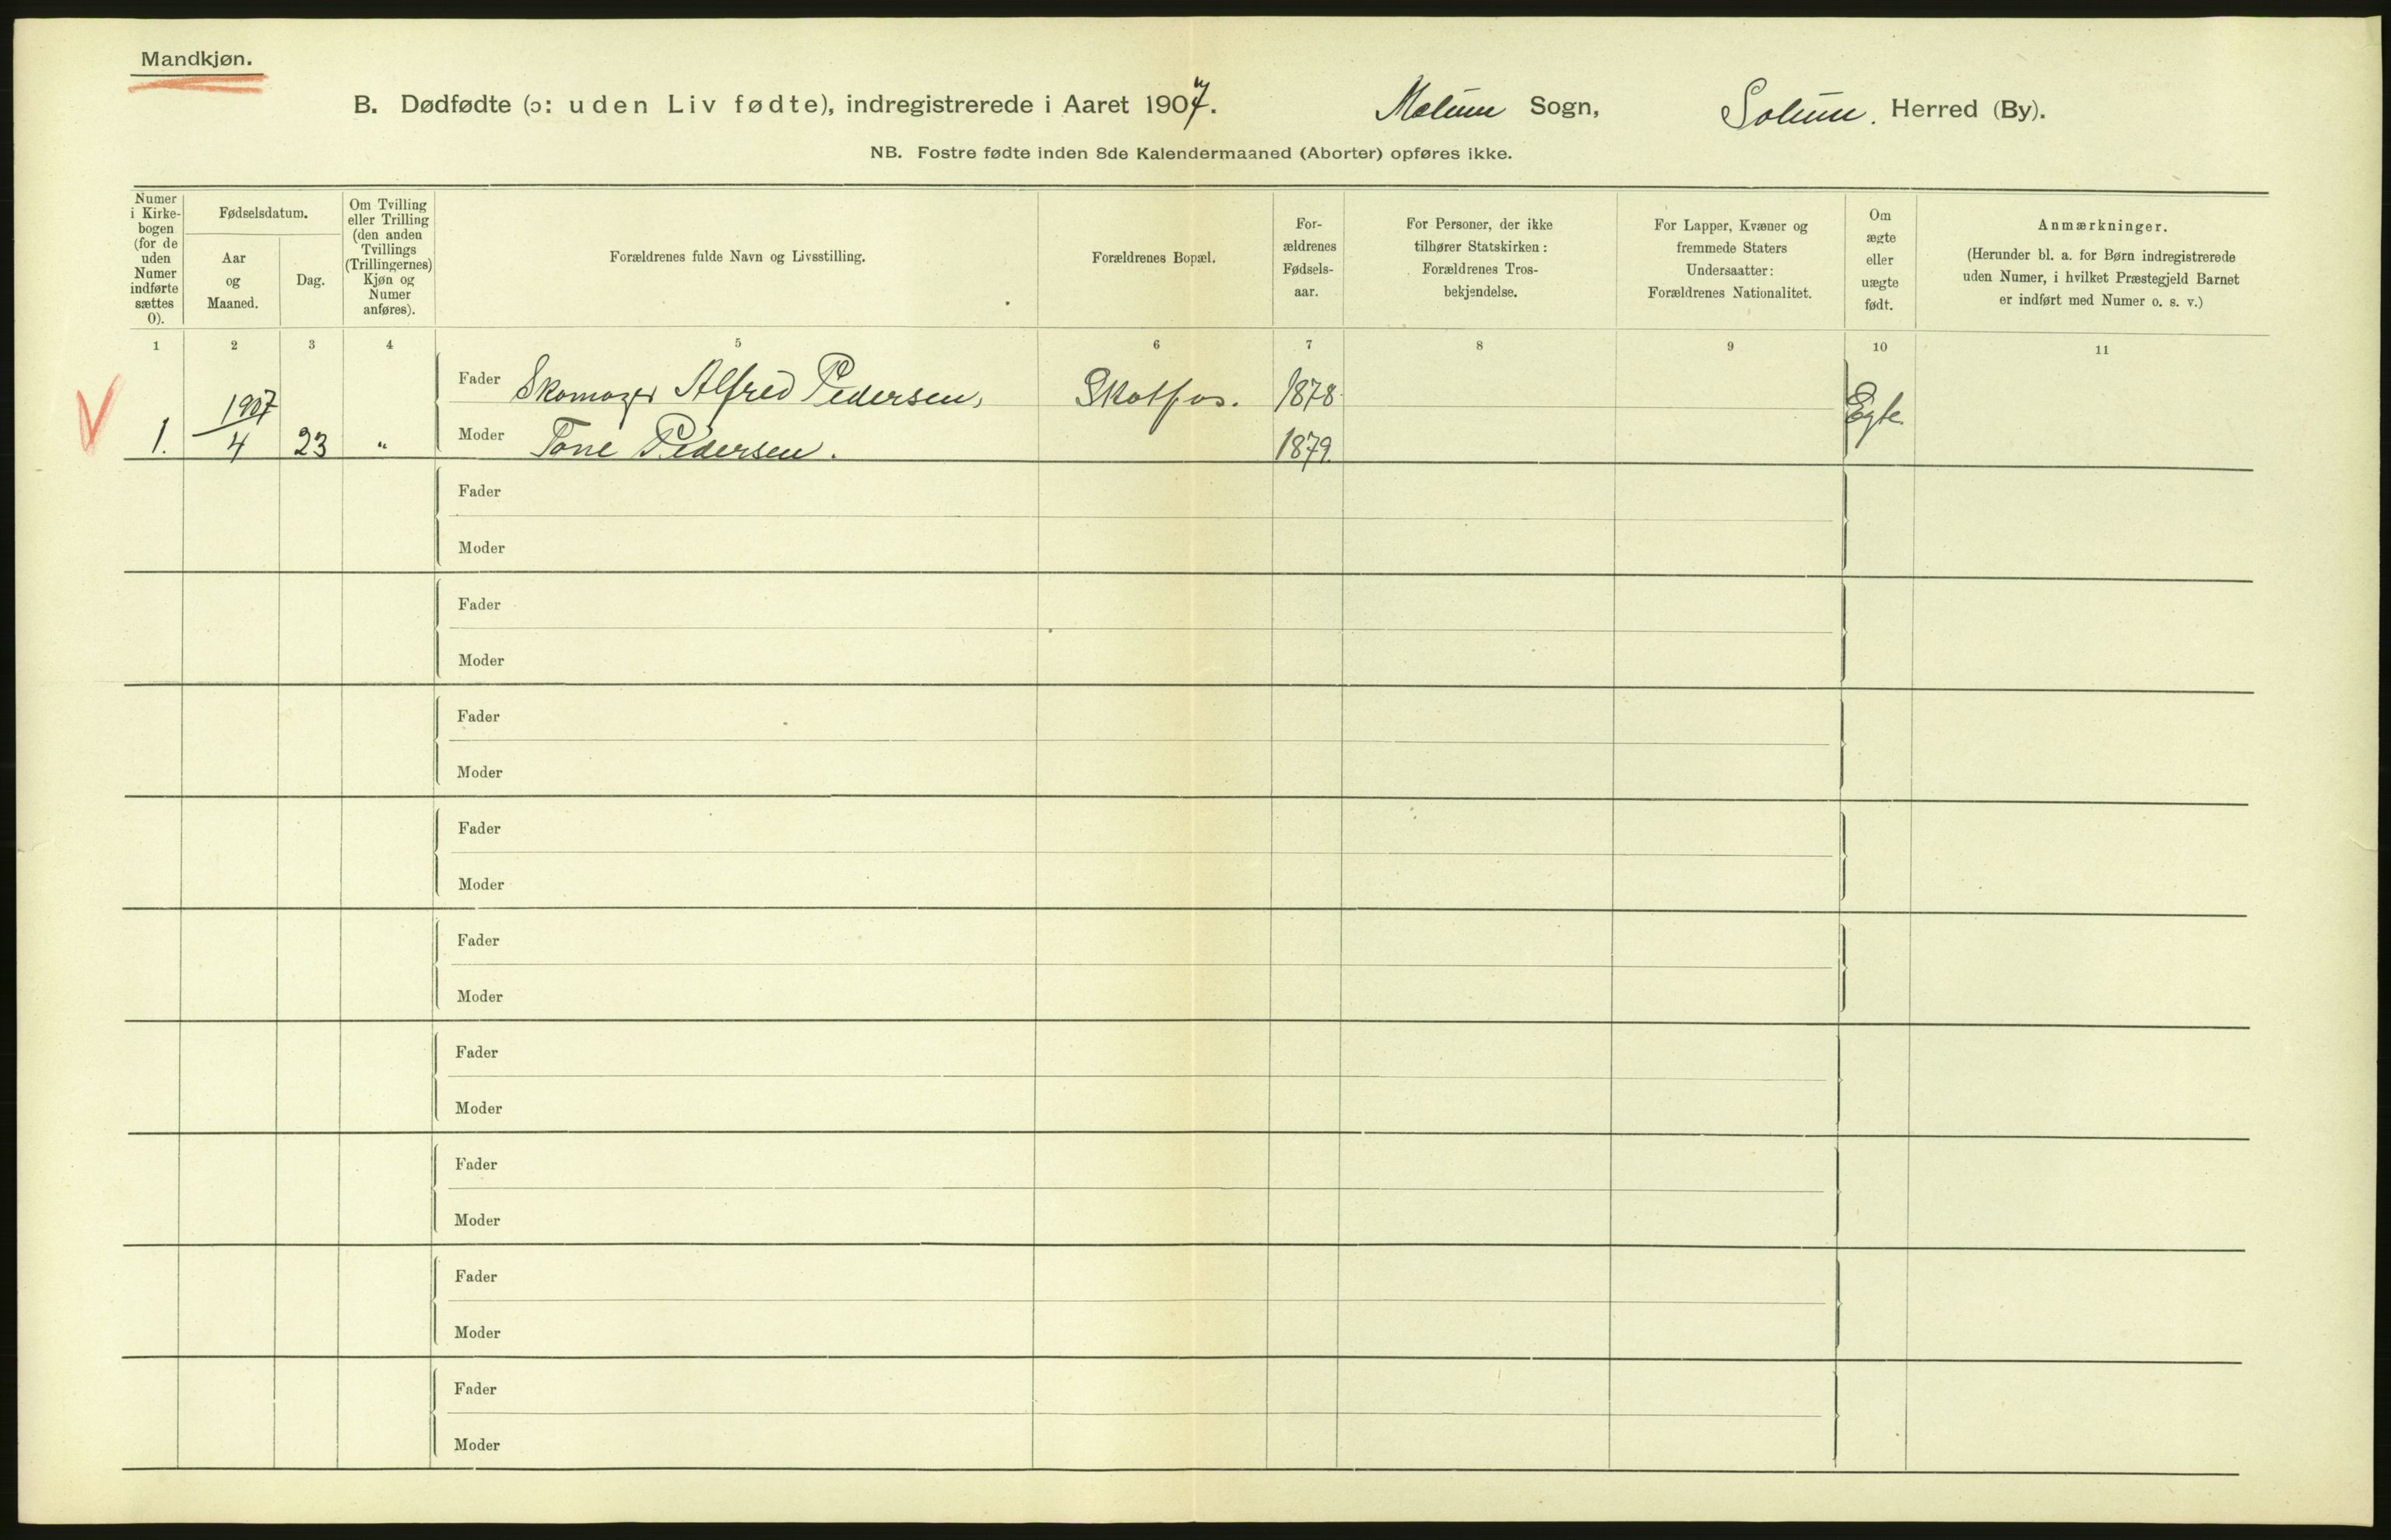 Mandkjøn.
B. Dødfødte (ɔ: uden Liv fødte), indregistrerede i Aaret 1907. Melum Sogn, Solum. Herred (By).
NB. Fostre fødte inden 8de Kalendermaaned (Aborter) opføres ikke.
Numer
i Kirke-
bogen
(for de
uden
Numer
indførte
sættes
0).
Fødselsdatum.
Aar
og
Maaned.
Dag.
Om Tvilling
eller Trilling
(den anden
Tvillings
(Trillingernes)
Kjøn og
Numer
anføres).
Forældrenes fulde Navn og Livsstilling.
Forældrenes Bopæl.
For-
ældrenes
Fødsels-
aar.
For Personer, der ikke
tilhører Statskirken:
Forældrenes Tros-
bekjendelse.
For Lapper, Kvæner og
fremmede Staters
Undersaatter:
Forældrenes Nationalitet.
Om
ægte
eller
uægte
født.
Anmærkninger.
(Herunder bl. a. for Børn indregistrerede
uden Numer, i hvilket Præstegjeld Barnet
er indført med Numer o. s. v.)
1 2 3 4 5 6 7 8 9 10 11
1907
Fader Skomager Alfred Pedersen, Skotfos. 1878. Egte
1. 4 23 " Moder Tone Pedersen. 1879.
Fader
Moder
Fader
Moder
Fader
Moder
Fader
Moder
Fader
Moder
Fader
Moder
Fader
Moder
Fader
Moder
Fader
Moder